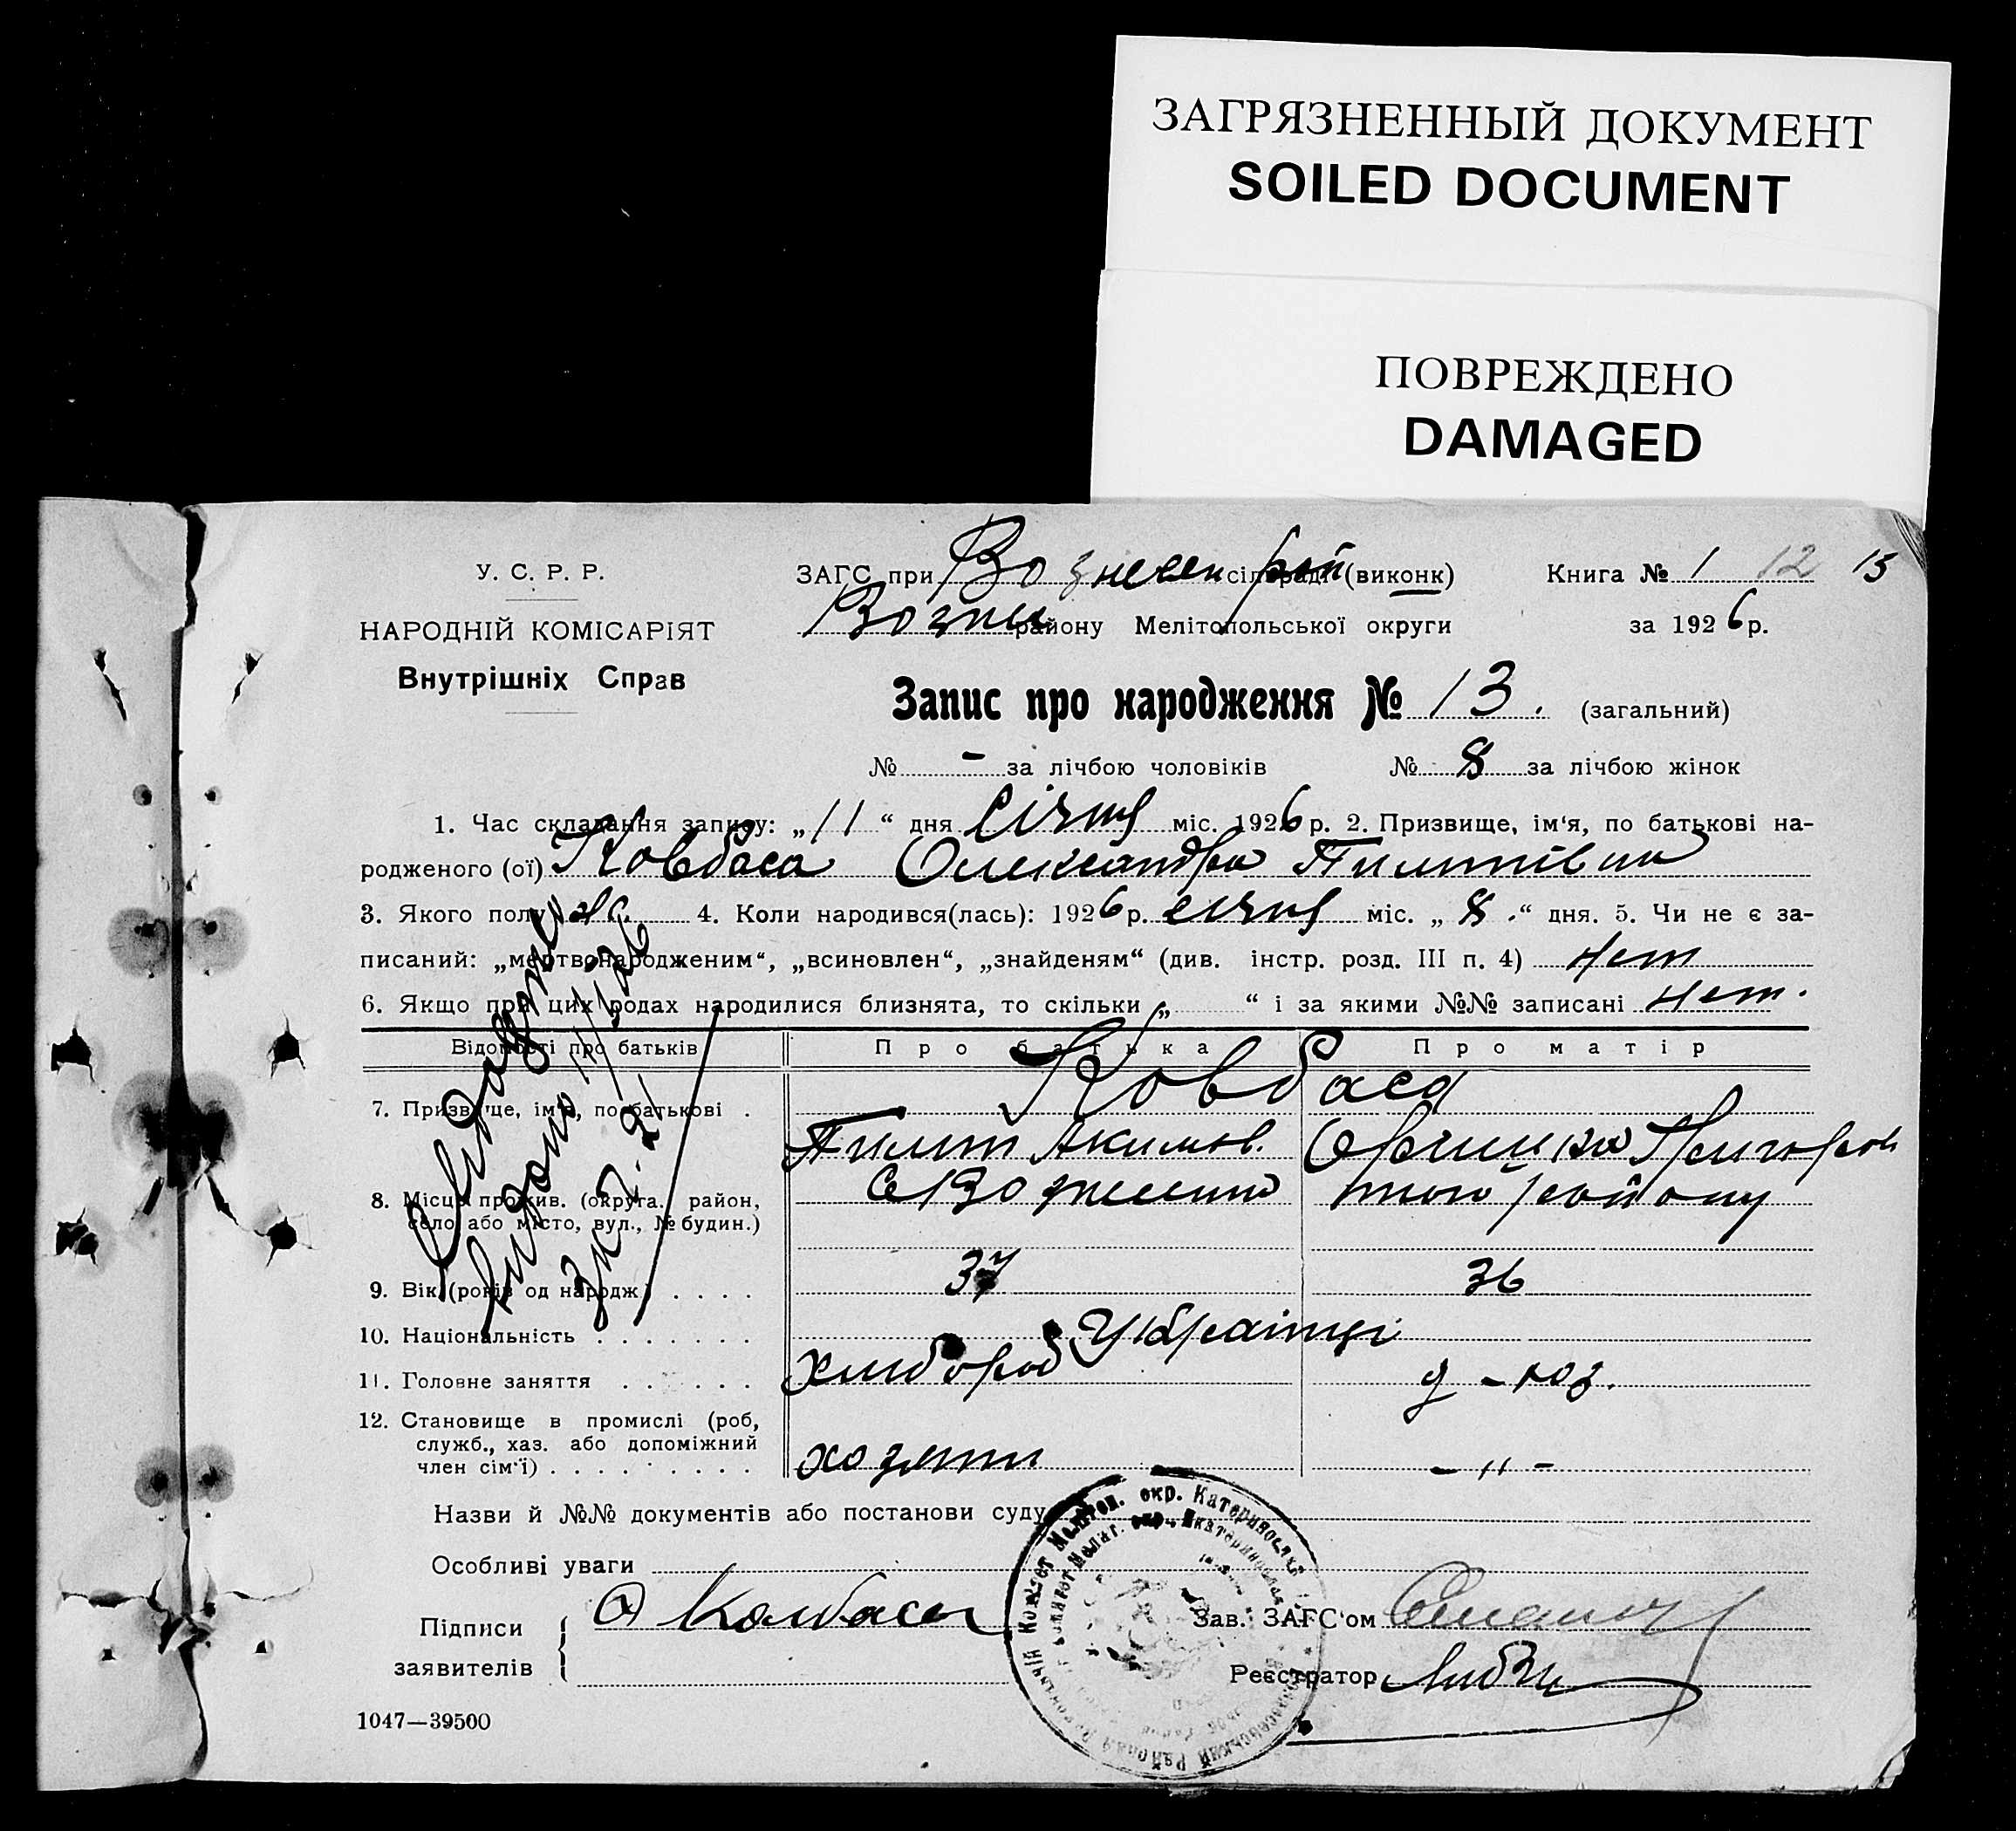 ЗАГРЯЗНЕННЫЙ ДОКУМЕНТ
SOILED DOCUMENT
ПОВРЕЖДЕНО
DAMAGED
У. С. Р. Р.
НАРОДНІЙ КОМІСАРІЯТ
Внутрішніх Справ
ЗАГС при Вознесен рай сільраді (виконк) Книга № 1 12 13
Вознес району Мелітопольської округи за 1926 р.
Запис про народження № 13. (загальний)
№ - за лічбою чоловіків № 8 за лічбою жінок
1. Час складання запису: „11“ дня Січня міс. 1926 р. 2. Призвище, ім‘я, по батькові на-
родженого (ої) Ковбаса Олександра Пилипівна
3. Якого полу ж. 4. Коли народився(лась): 1926 р. січня міс. „8.“ дня. 5. Чи не є за-
писаний: „мертвонародженим“, „всиновлен“, „знайденям“ (див. інстр. розд. III п. 4) нет
6. Якщо при цих родах народилися близнята, то скільки „ “ і за якими №№ записані нет.
Відомості про батьків Про батька Про матір
7. Призвище, ім‘я, по батькові . Ковбаса
Пилип Акимов. Григоров
8. Місце прожив. (округа, район, село або місто, вул., № будин.) с Вознесенка того району
9. Вік (років од народж.) . . . . 37 36
10. Національність . . . . . . . Українці
11. Головне заняття . . . . . . хлібороб д-хоз.
12. Становище в промислі (роб, служб., хаз. або допоміжний член сім‘ї) . . . . . . . . . хозяин - „ -
Назви й №№ документів або постанови суду
Особливі уваги
Підписи заявителів Колбаса
Зав. ЗАГС‘ом
Реєстратор
1047—39500